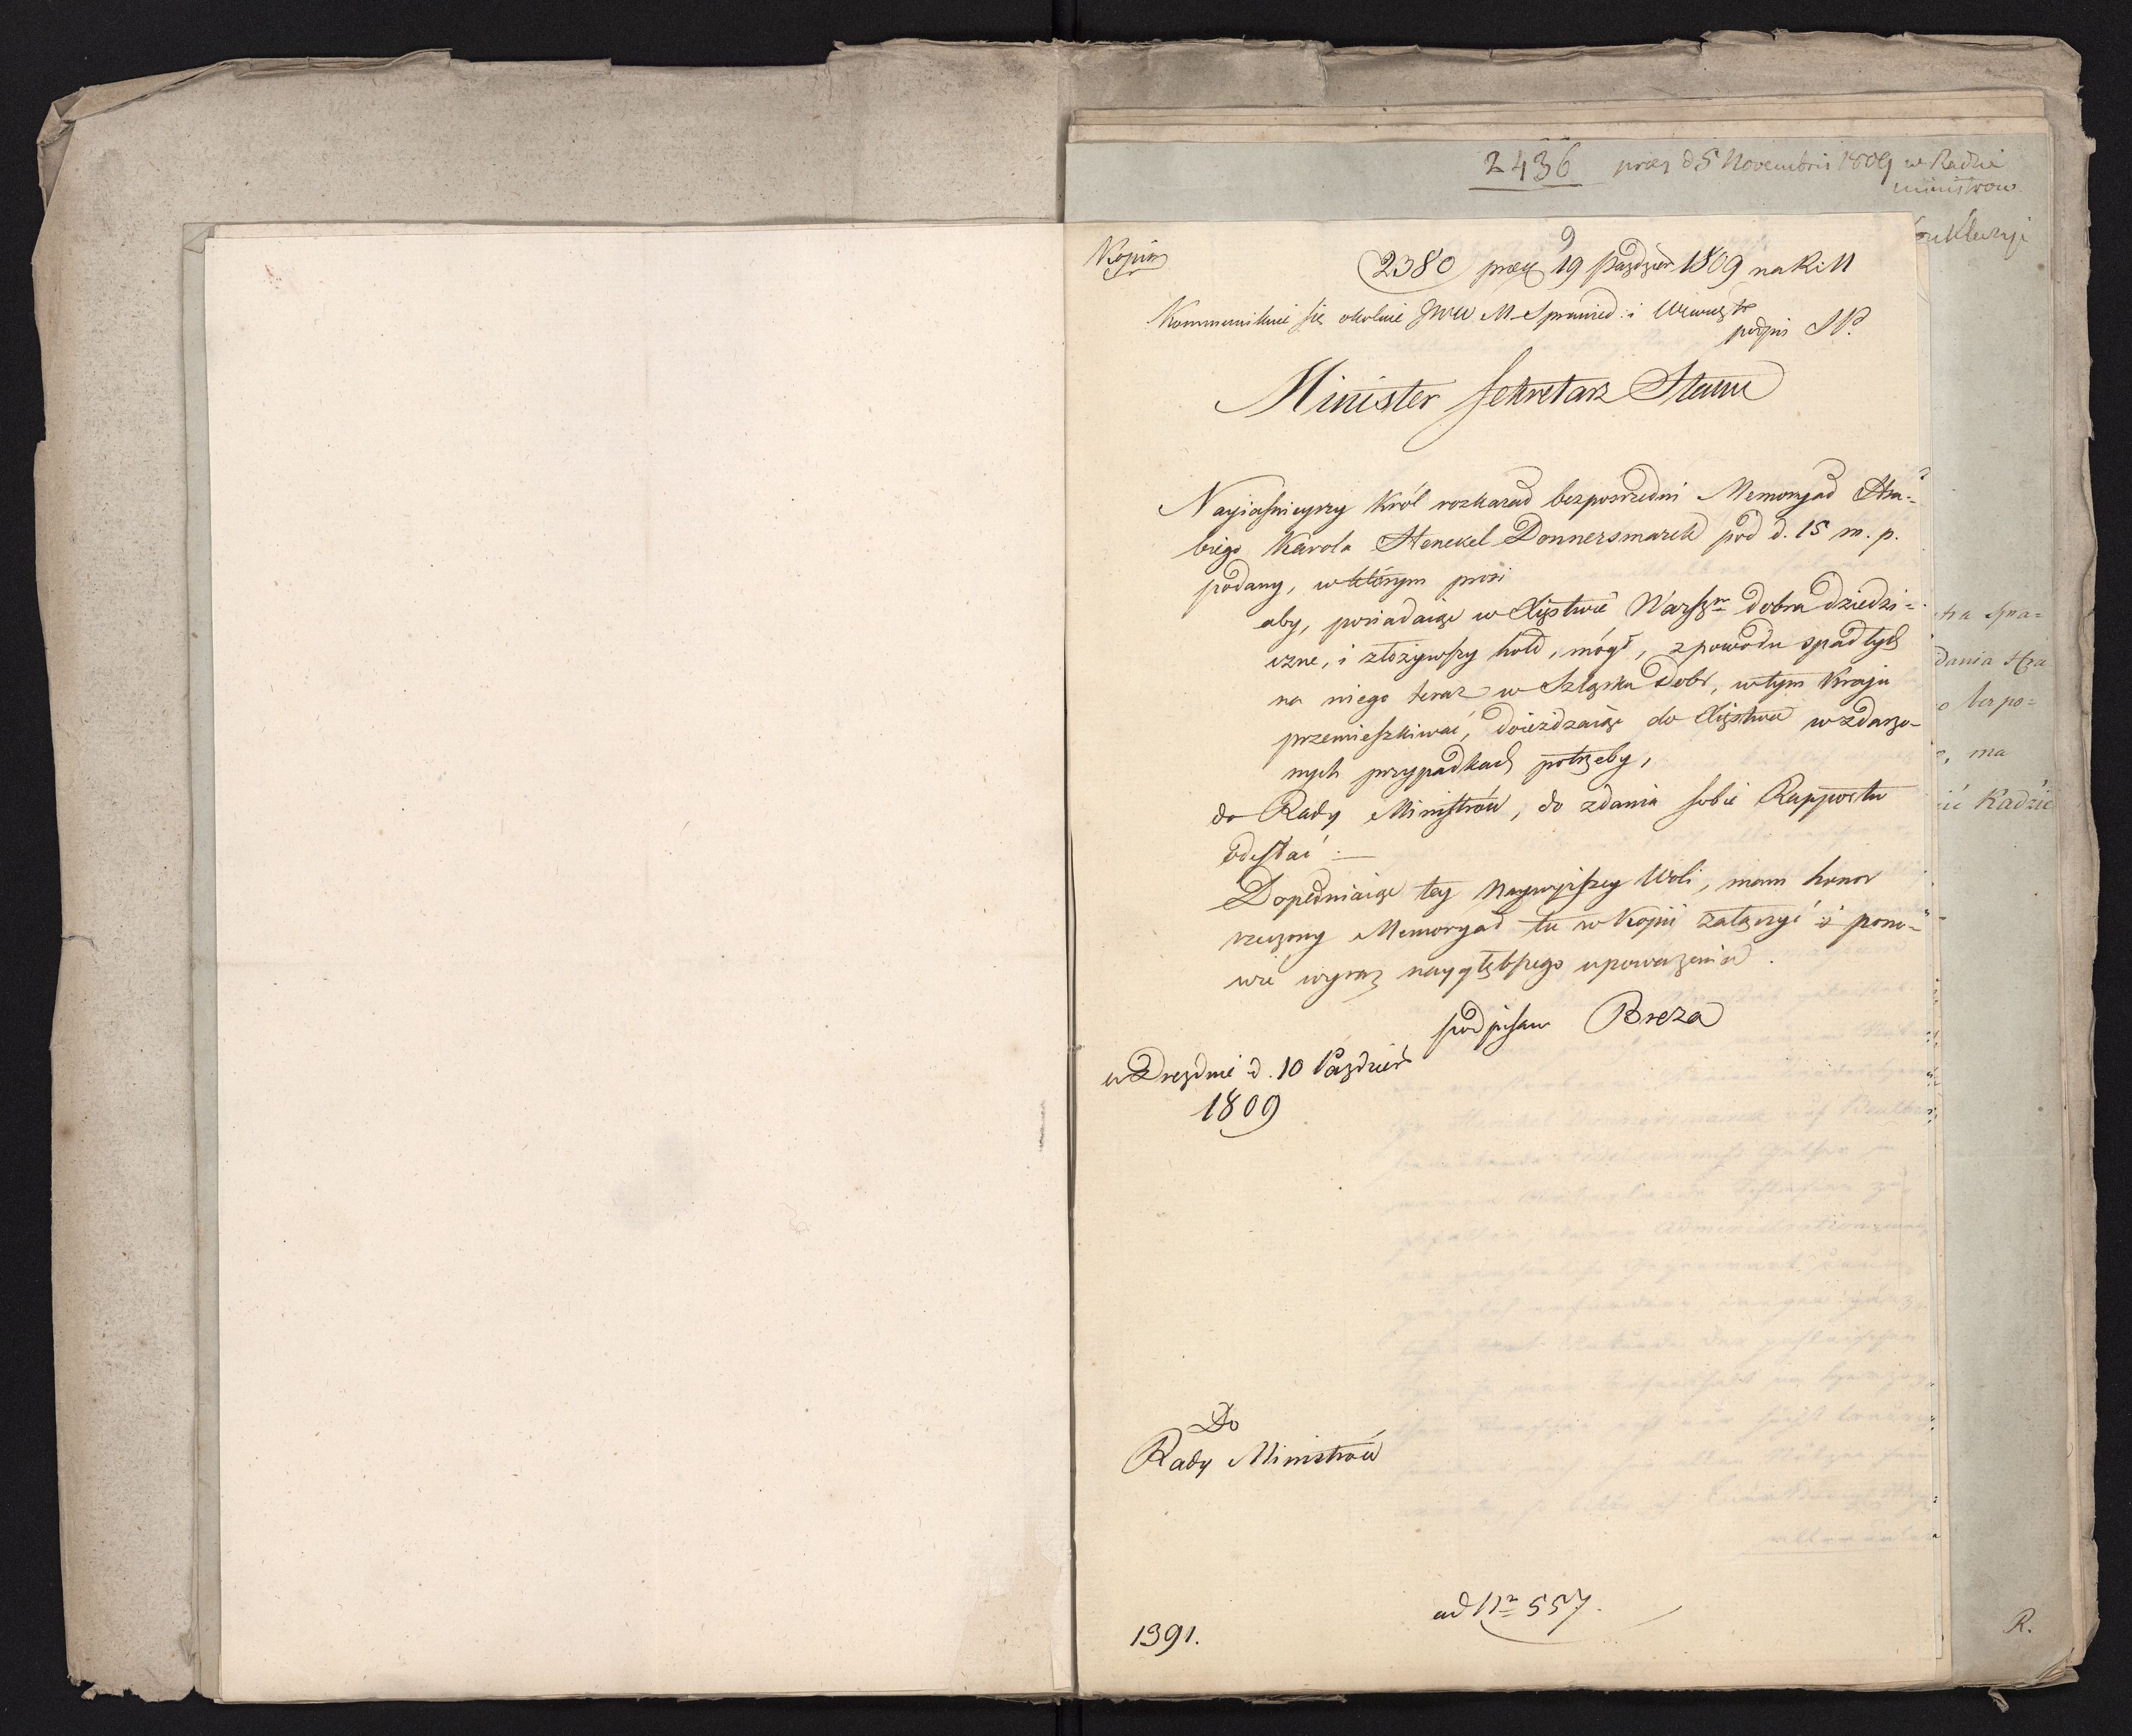 2436 praes d 5 Novembris 1809 w Radzie
Ministrow
Kopia
2380 praes 19 Paździer 1809 na R: M
Kommunikuie się okolnie JWW M. Sprawied: i Wewnętr
podpis SP.
Minister Sekretarz Stanu
Nayiaśnieyszy Król rozkazał bezpośredni Memoryał Hra-
biego Karola Henckel Donnersmarck pod d. 15 m. p.
podany, w którym prosi
aby, posiadaiąc w Xięstwie Warszm dobra dziedzi-
czne, i złożywszy hołd, mógł, z powodu spadłych
na niego teraz w Szląsku dóbr, w tym Kraju
przemieszkiwać, doieżdżaiąc do Xięstwa w zdarzo-
nych przypadkach potrzeby,
do Rady Ministrów, do zdania sobie Rapportu
odesłać.
Dopełniaiąc tey Naywyższey Woli, mam honor
rzeczony Memoryał tu w Kopii załączyć i pono-
wić wyraz naygłębszego upoważenia.
podpisano Breza
w Dreznie d. 10 Paździer
1809
Do
Rady Ministrów
ad Nr 557.
1391.
tra Spra-
dania Hra
o bezpo-
, ma
ić Radzie
R.